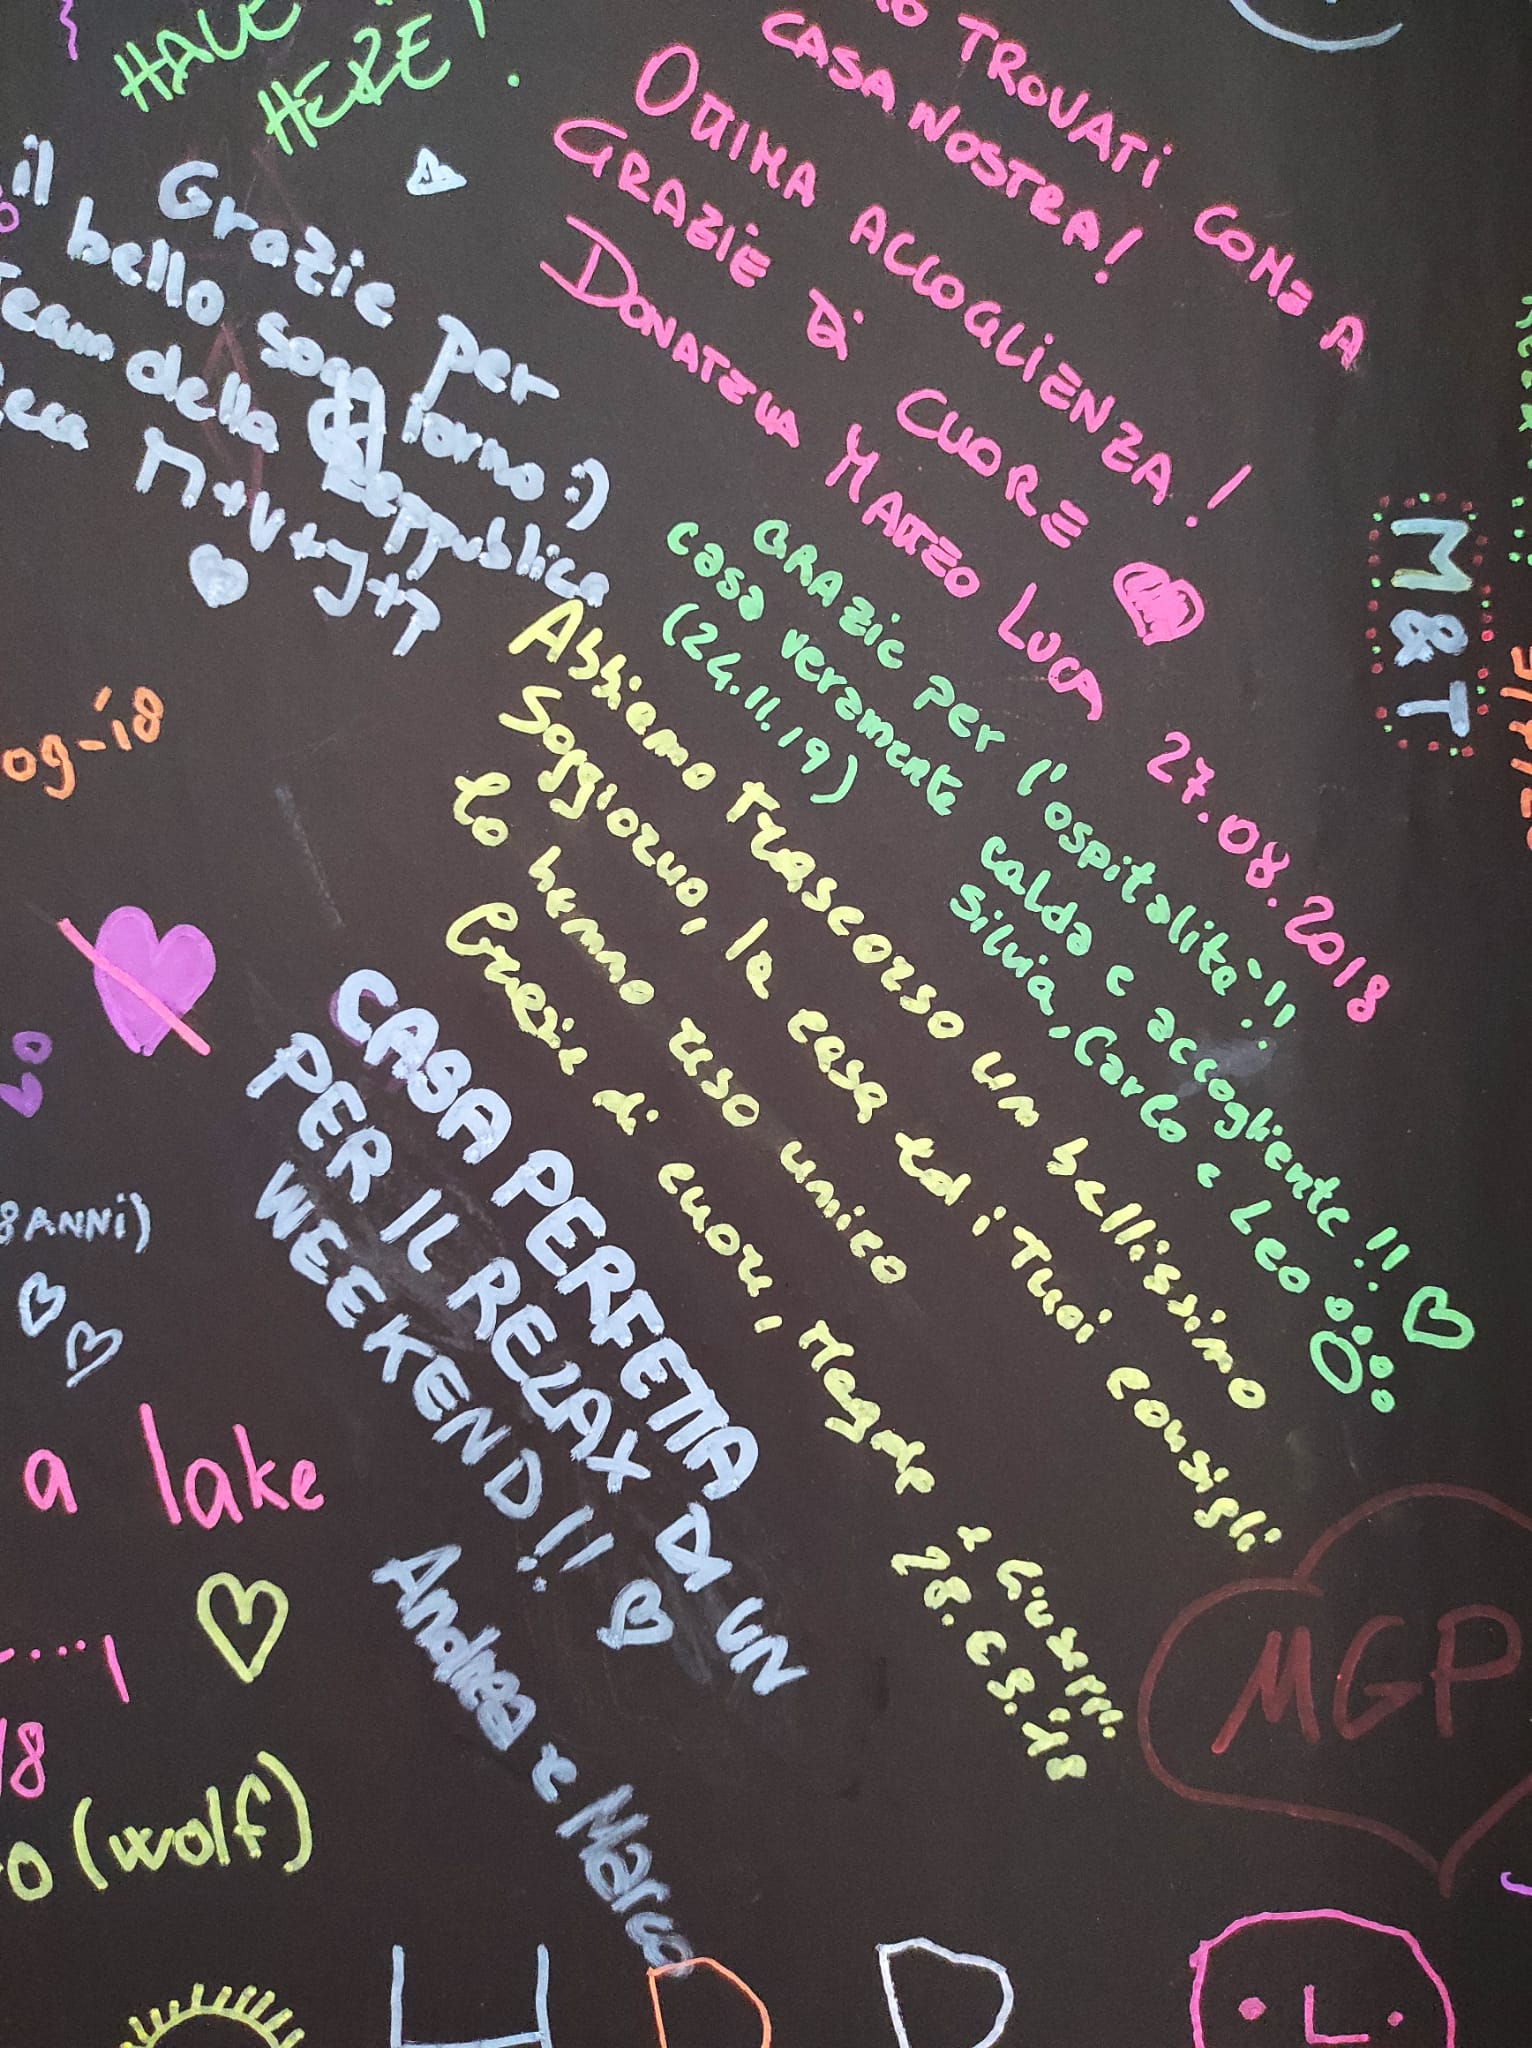 HAVE
HERE!
TROVATI COME A
CASA NOSTRA!
OTTIMA ACCOGLIENZA!
GRAZIE DI CUORE
DONATELLA MATTEO LUCA 27.08.2018
Grazie per
il bello soggiorno :)
Team della Reppublica
M+V+J+P
M&T
GRAZIE per l'ospitalità!!
casa veramente calda e accogliente!!
(24.11.19) Silvia, Carlo e Leo
Abbiamo trascorso un bellissimo
Soggiorno, la casa ed i Tuoi consigli
lo hanno reso unico
Grazie di cuore, Magda e Giuseppe.
28.09.18
og-18
CASA PERFETTA DI UN
PER IL RELAX
WEEKEND!!
Andrea e Marco
8 ANNI)
a lake
18
o (wolf)
MGP